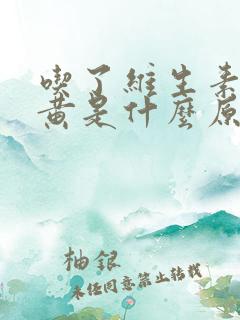 喫了維生素
黃是什麼原
柚銀
未經同意禁止轉載